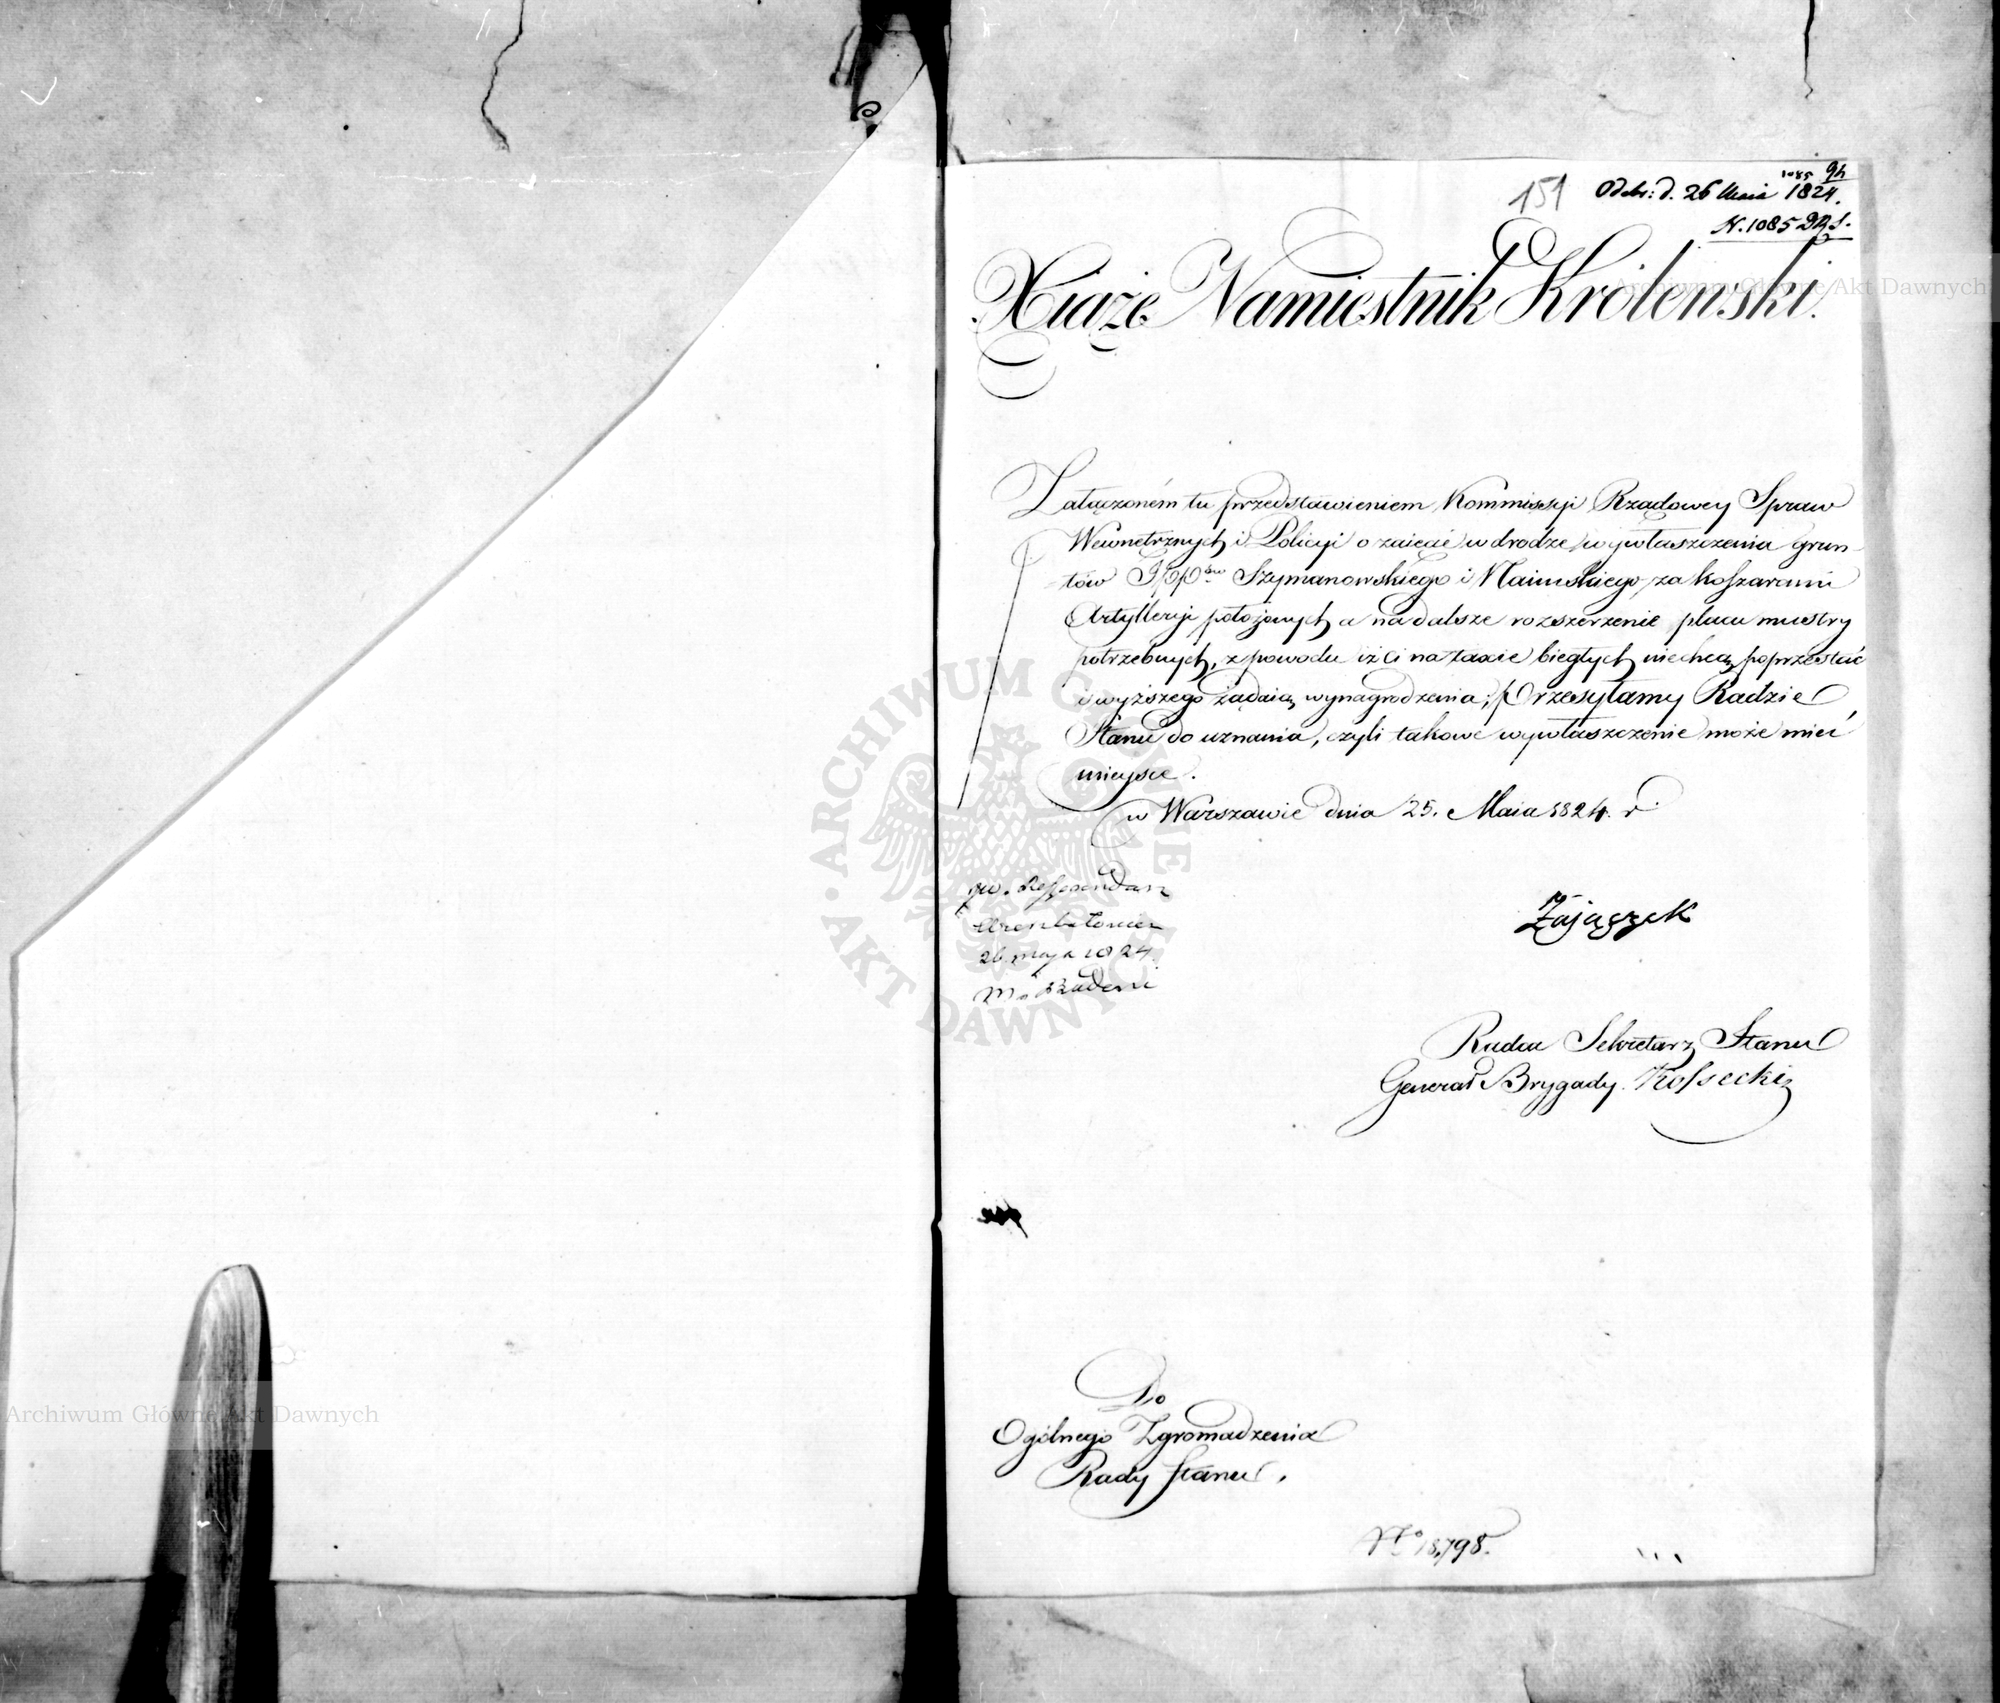 151
1085 94
Odebr: d. 26 Maia 1824.
N. 1085 DRS.
Xiąże Namiestnik Królewski.
Załączoném tu przedstawieniem Kommissyi Rządowey Spraw
Wewnętrznych i Policyi o zaięcie w drodze wywłaszczenia grun-
tów JPP Szymanowskiego i Naimskiego za koszarami
Artylleryi położonych a na dalsze rozszerzenie placu mustry
potrzebnych, z powodu iż ci na taxie biegłych niechcą poprzestać
i wyższego żądaią wynagrodzenia; przesyłamy Radzie
Stanu do uznania, czyli takowe wywłaszczenie może mieć
mieysce.
w Warszawie dnia 25. Maia 1824. r.
Zajączek
26 maja 1824.
Radca Sekretarz Stanu
Generał Brygady Kossecki
Do
Ogólnego Zgromadzenia
Rady Stanu.
No 18,798.
Archiwum Główne Akt Dawnych
Archiwum Główne Akt Dawnych
ARCHIWUM GŁÓWNE AKT DAWNYCH